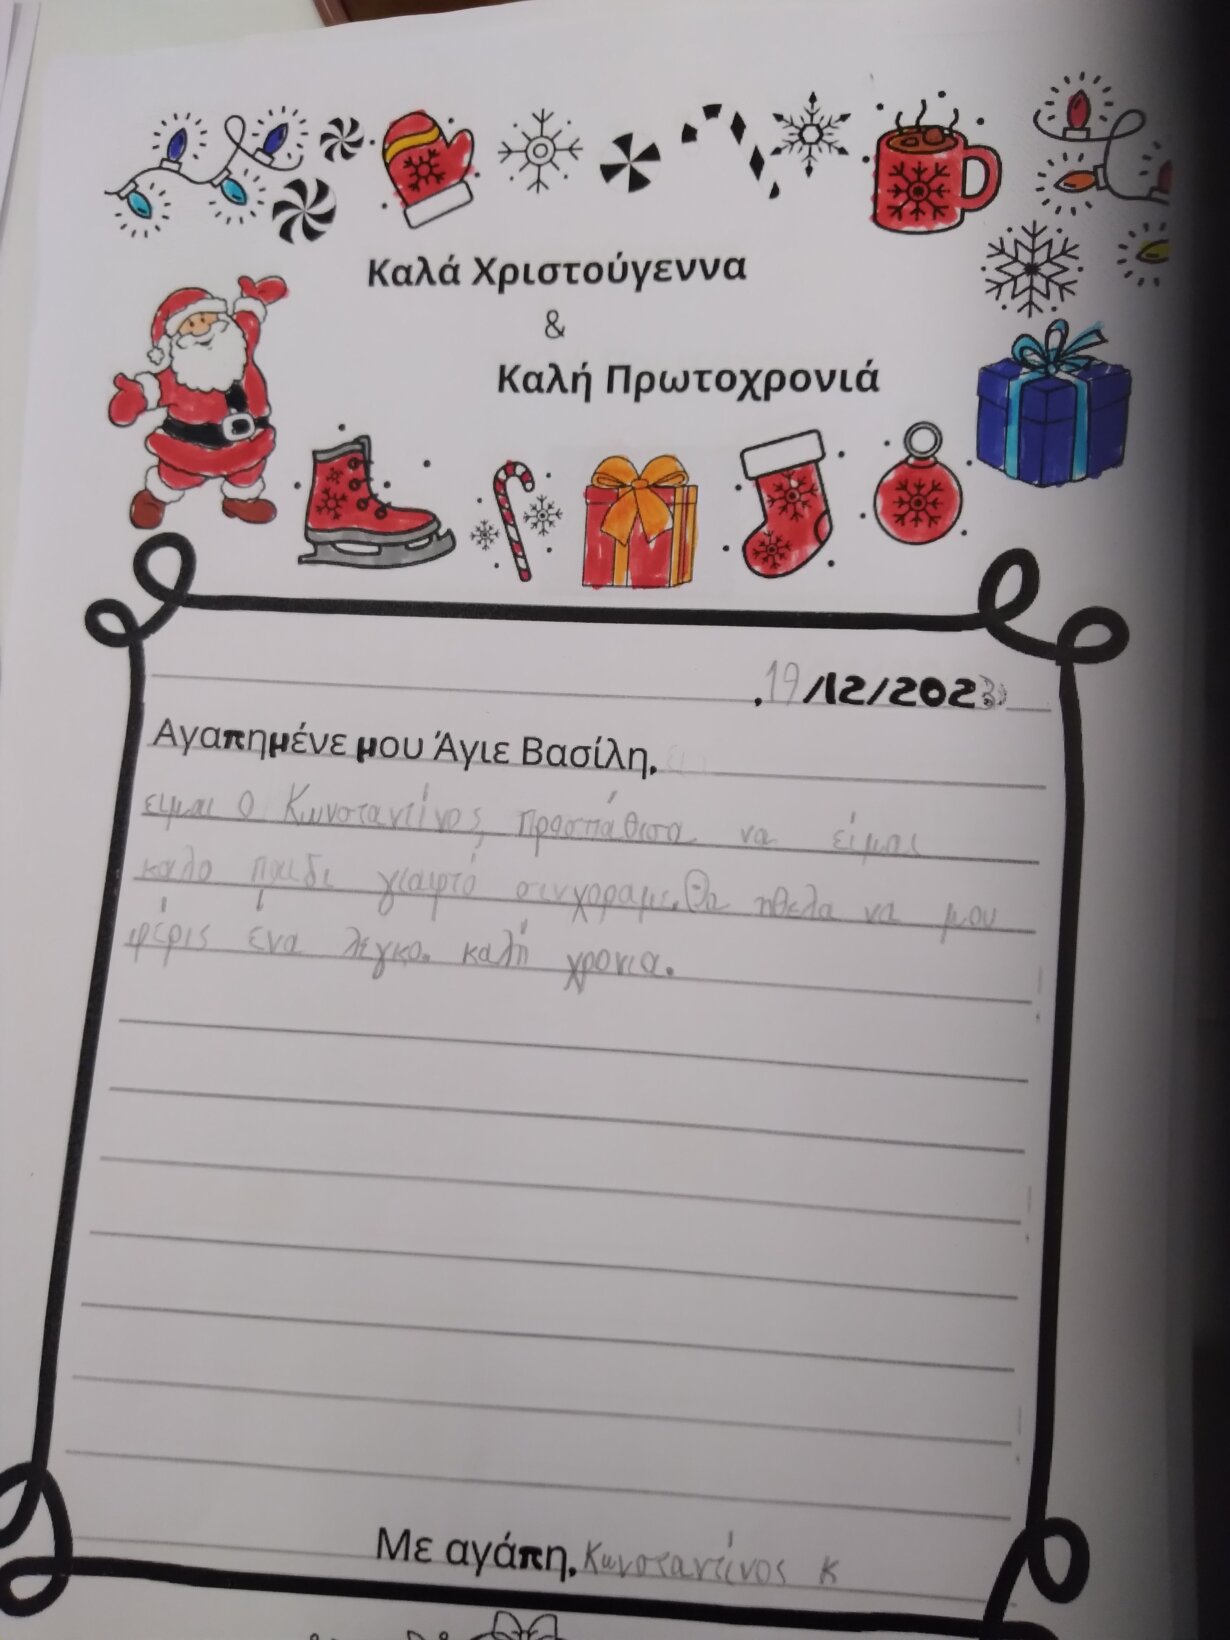 Καλά Χριστούγεννα
&
Καλή Πρωτοχρονιά
19/12/2023
Αγαπημένε μου Άγιε Βασίλη,
ειμαι ο Κωνσταντίνος προσπάθισα να είμαι
καλο παιδι γιαφτό σινχοραμε. Θα ηθελα να μου
φέρις ένα λέγκο. καλή χρονια.
Με αγάπη, Κωνσταντίνος κ